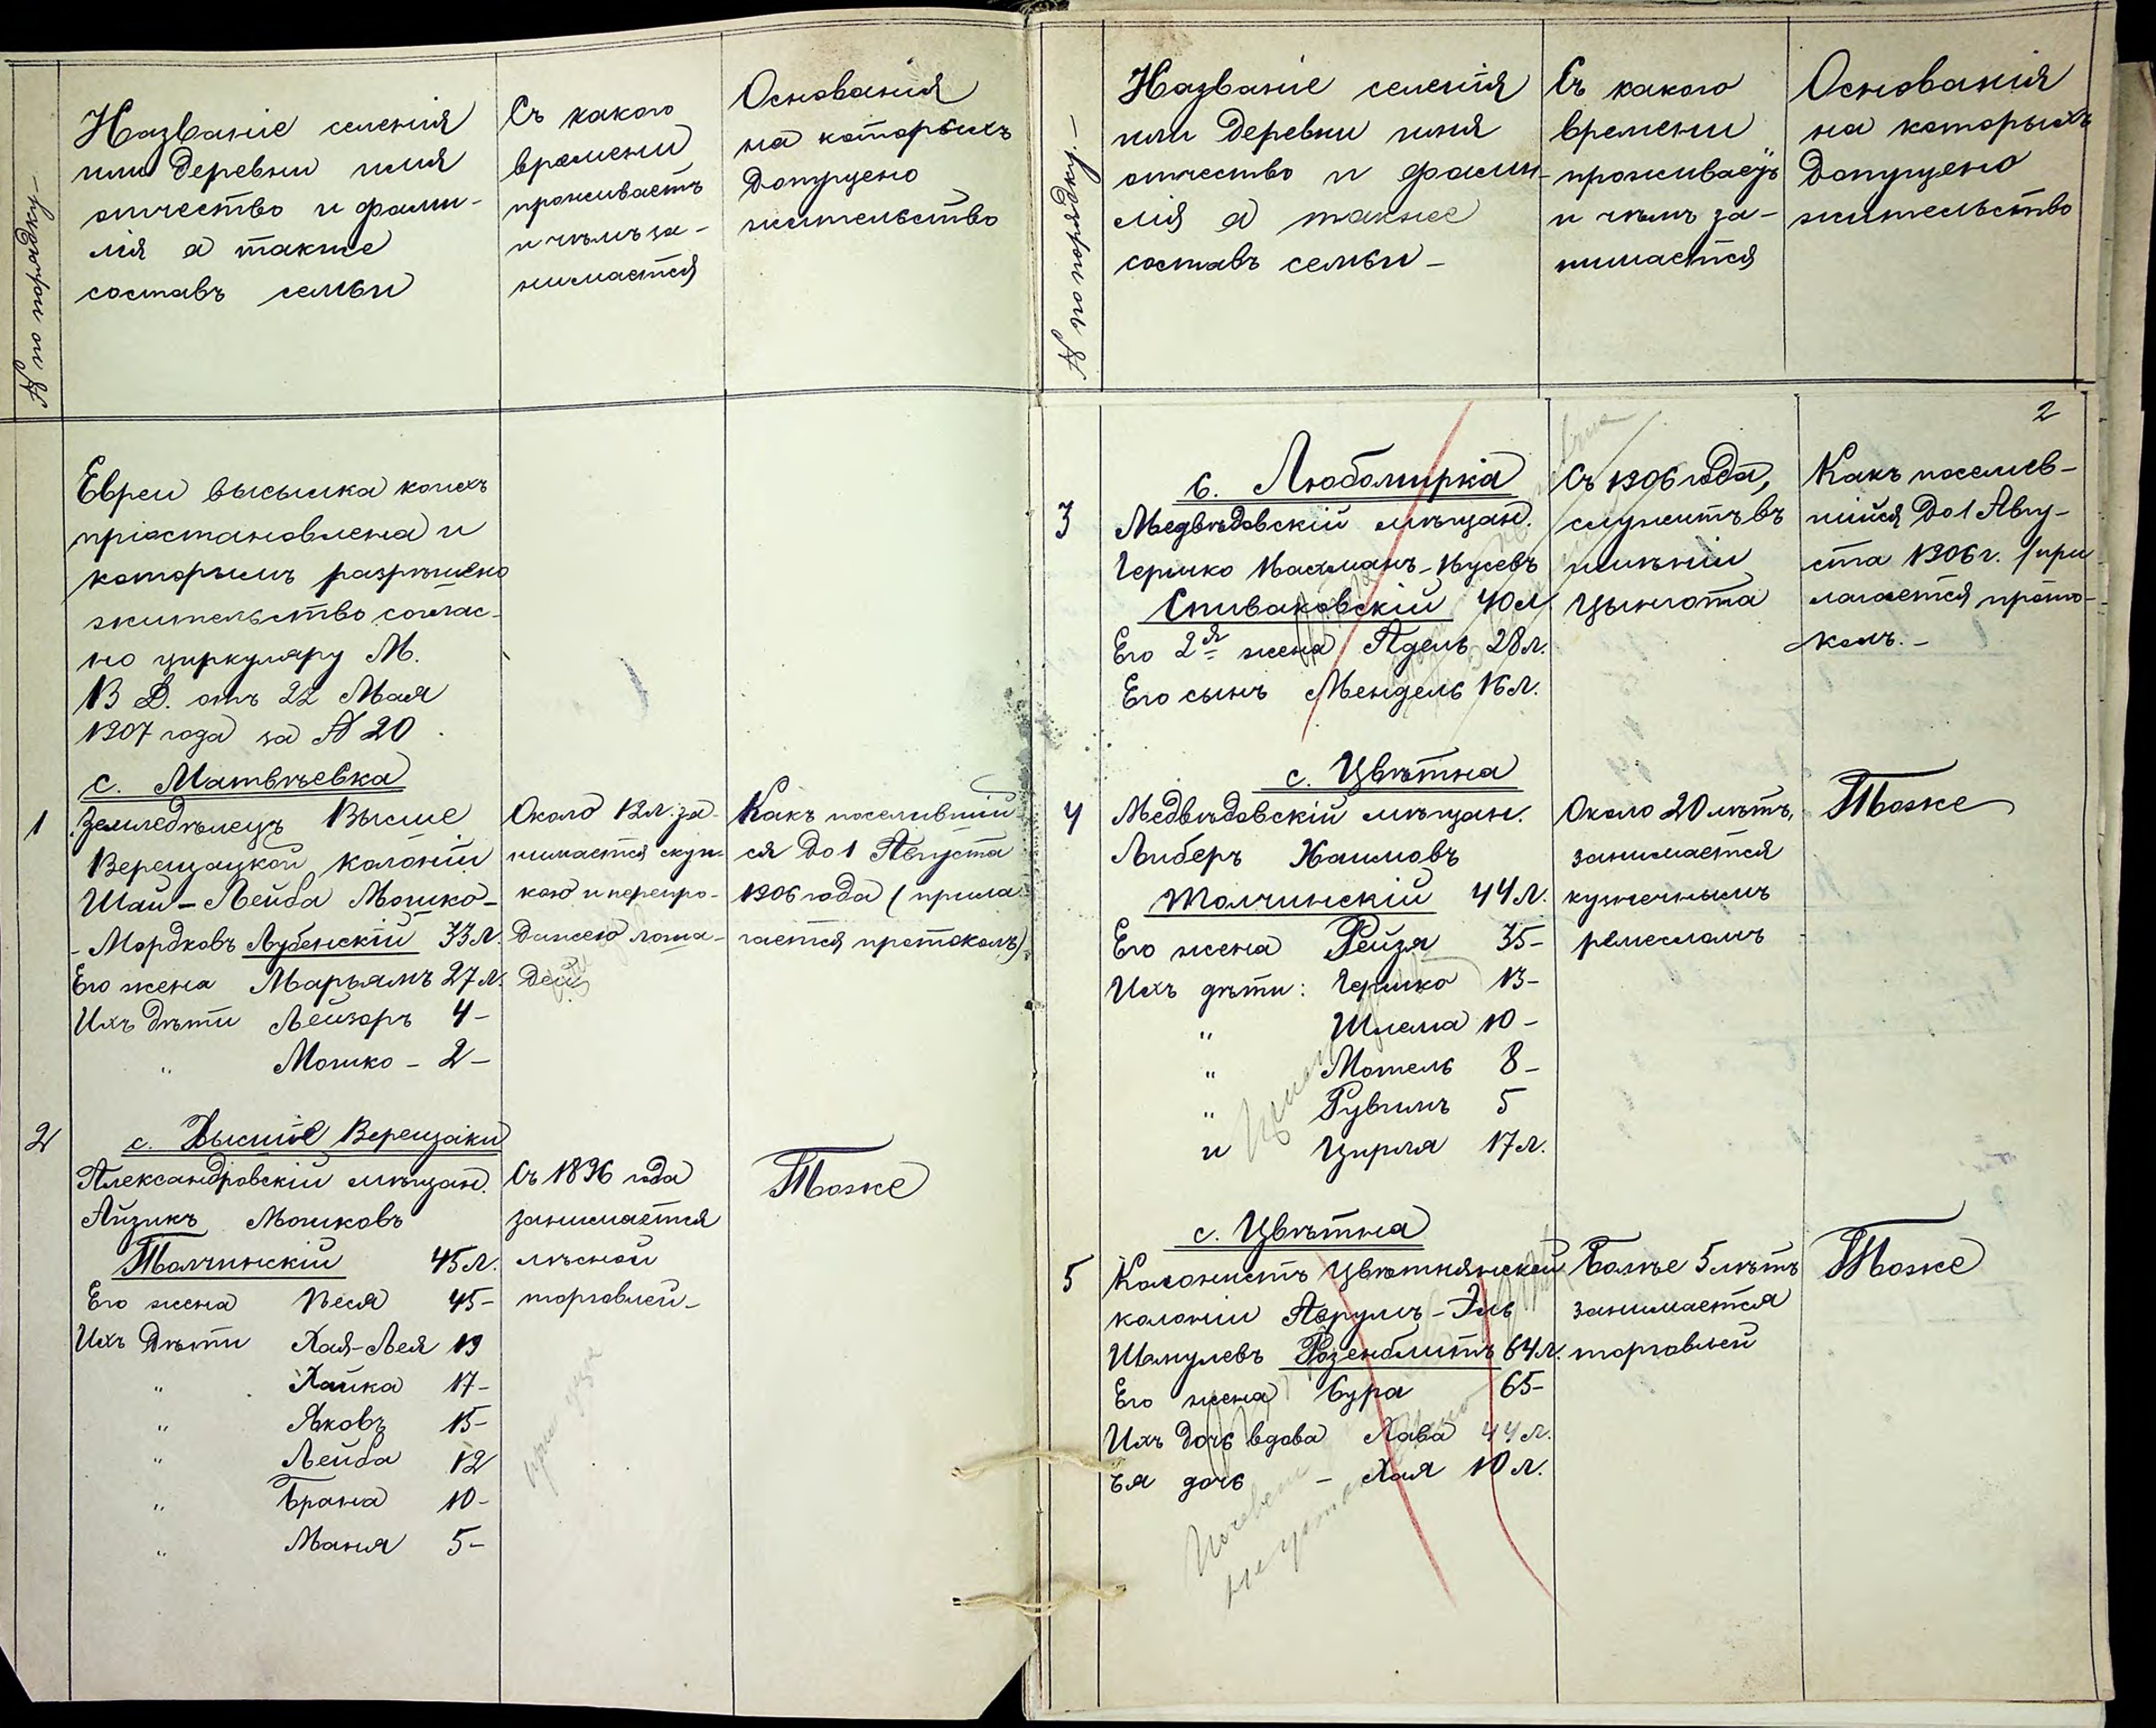 № по порядку –
Названіе селенія
или деревни имя
отчество и фами-
лія а также
составъ семьи
Съ какого
времени
проживаетъ
и чѣмъ за-
нимается
Основанія
на которыхъ
допущено
жительство
Евреи высылка коихъ
пріостановлена и
которымъ разрѣшено
жительство соглас-
но циркуляру М.
В Д. отъ 22 Мая
1907 года за № 20
с. Матвѣевка
1
Земледѣлецъ Высше
Верещацкой колоніи
Шай-Лейба Мошко-
-Мордковъ Лубенскій 33 л.
Его жена Марьямъ 27 л.
Ихъ дѣти Лейзоръ 4 –
" Мошко – 2 –
Около 12 л. за-
нимается скуп-
кою и перепро-
дажею лоша-
дей
Какъ поселившій-
ся до 1 Августа
1906 года (прила-
гается протоколъ)
2
с. Высшіе Верещаки
Александровскій мѣщан.
Айзикъ Мошковъ
Толчинскій 45 л.
Его жена Песя 45 –
Ихъ дѣти Хая-Лея 19
" Хайка 17 –
" Яковъ 15 –
" Лейба 12
" Брана 10 –
" Маня 5 –
Съ 1896 года
занимается
лѣсной
торговлей –
Тоже
№ по порядку. –
Названіе селенія
или деревни имя
отчество и фами-
лія а также
составъ семьи –
Съ какого
времени
проживаетъ
и чѣмъ за-
нимается
Основанія
на которыхъ
допущено
жительство
2
с. Любомирка
3
Медвѣдовскій мѣщан.
Гершко Нахманъ-Нусевъ
Спиваковскій 40 л.
Его 2-я жена Адель 28 л.
Его сынъ Мендель 16 л.
Съ 1906 года,
служитъ въ
имѣніи
Цынгота
Какъ поселив-
шійся до 1 Авгу-
ста 1906 г. /при
лагается прото-
колъ. –
с. Цвѣтна
4
Медвѣдовскій мѣщан.
Либеръ Хаимовъ
Толчинскій 44 л.
Его жена Рейзя 35 –
Ихъ дѣти: Гершко 13 –
" Шлема 10 –
" Мотель 8 –
" Рувимъ 5
и Цирля 17 л.
Около 20 лѣтъ,
занимается
кузнечнымъ
ремесломъ
Тоже
с. Цвѣтна
5
Колонистъ Цвѣтнянской
колоніи Аврумъ-Эль
Шмулевъ Розенблитъ 64 л.
Его жена Сура 65 –
Ихъ дочь вдова Хава 44 л.
Ея дочь – Хая 10 л.
Болѣе 5 лѣтъ
занимается
торговлей
Тоже